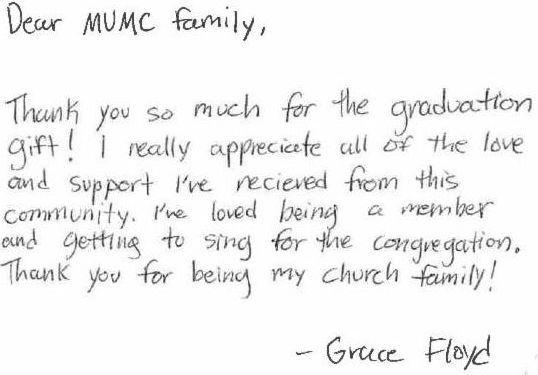 Dear MUMC family,
Thank you so much for the graduation
gift! I really appreciate all of the love
and support I've recieved from this
community. I've loved being a member
and getting to sing for the congregation.
Thank you for being my church family!
- Grace Floyd